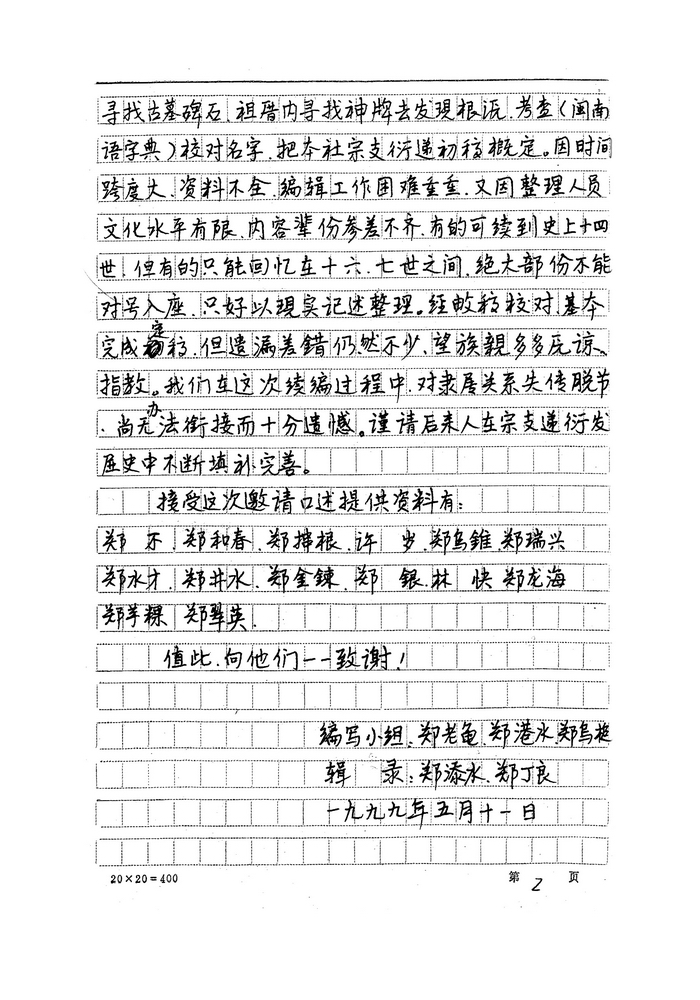 寻找古墓碑石、祖厝内寻找神牌去发现根源、考查(闽南
语字典)校对名字、把本社宗支衍递初稿概定。因时间
跨度大、资料不全、编辑工作困难重重、又因整理人员
文化水平有限、内容辈份参差不齐、有的可续到史上十四
世、但有的只能回忆在十六、七世之间、绝大部份不能
对号入座、只好以现实记述整理。经幼稿校对、基本
完成定稿、但遗漏差錯仍然不少、望族親多多厡谅、
指教。我们在这次续编过程中、对隶属关系失传脱节
、尚无办法衔接而十分遗憾。谨请后来人在宗支递衍发
历史中不断填补完善。
接受这次邀请口述提供资料有:
郑 不、郑和春、郑 根、许 岁、郑乌錐、郑瑞兴
郑水才、郑井水、郑金鍊、郑 銀、林 快 郑龙海
郑芋粿 郑翠英、
值此、向他们一一致谢!
编写小组:郑老龟、郑港水、郑乌
辑 录:郑添水、郑丁良
一九九九年五月十一日
20×20=400
第2页